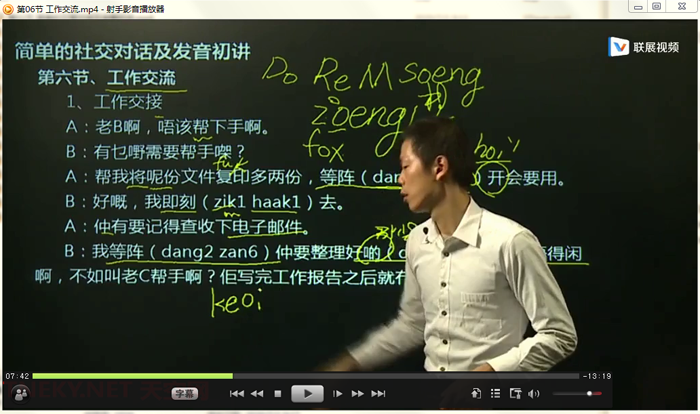 第06节 工作交流.mp4 - 射手影音播放器
联展视频
简单的社交对话及发音初讲
第六节、工作交流
Do Re M soeng
1、工作交接
zoeng
A：老B啊，唔该帮下手啊。
fox
B：有乜嘢需要帮手㗎？
hoi1
A：帮我将呢份文件复印多两份，等阵（dan）开会要用。
B：好嘅，我即刻（zik1 haak1）去。
A：仲有要记得查收下电子邮件。
B：我等阵（dang2 zan6）仲要整理好啲（得闲
啊，不如叫老C帮手啊？佢写完工作报告之后就
keoi
07:42
-13:19
字幕